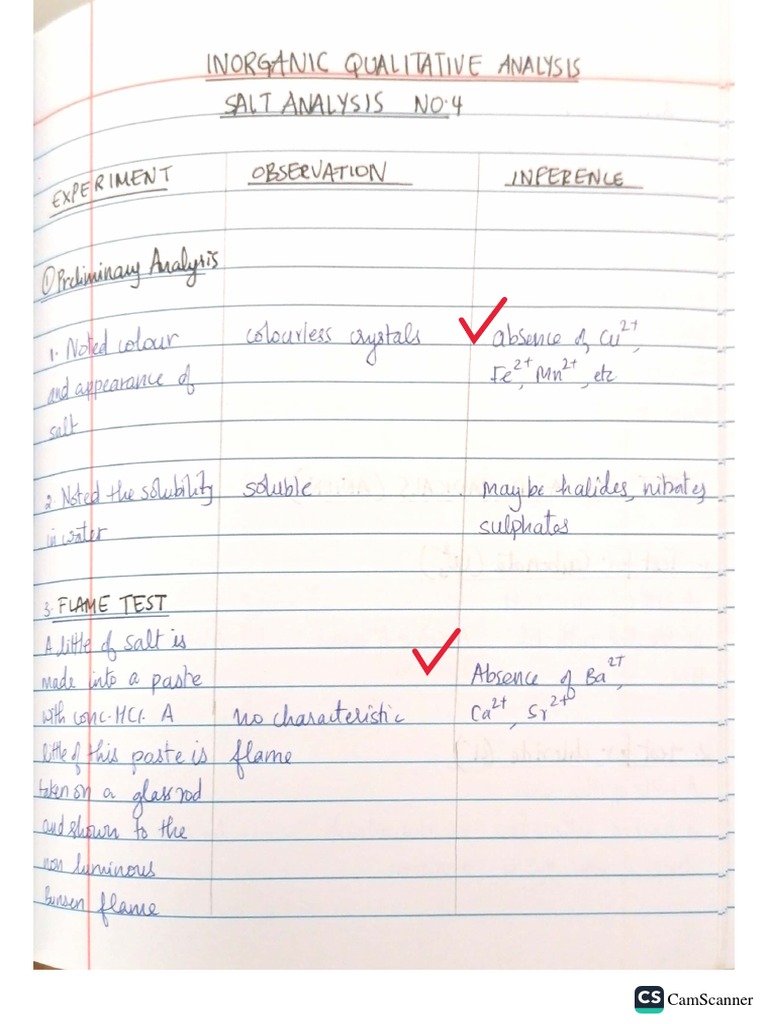 INORGANIC QUALITATIVE ANALYSIS
SALT ANALYSIS NO.4
EXPERIMENT OBSERVATION INFERENCE
① Preliminary Analysis
1. Noted colour colourless crystals absence of Cu²⁺,
and appearance of Fe²⁺, Mn²⁺, etc
salt
2. Noted the solubility soluble may be halides, nitrates
in water sulphates
3. FLAME TEST
A little of salt is
made into a paste Absence of Ba²⁺,
with conc. HCl. A no characteristic Ca²⁺, Sr²⁺
little of this paste is flame
taken on a glass rod
and shown to the
non luminous
Bunsen flame
CS CamScanner